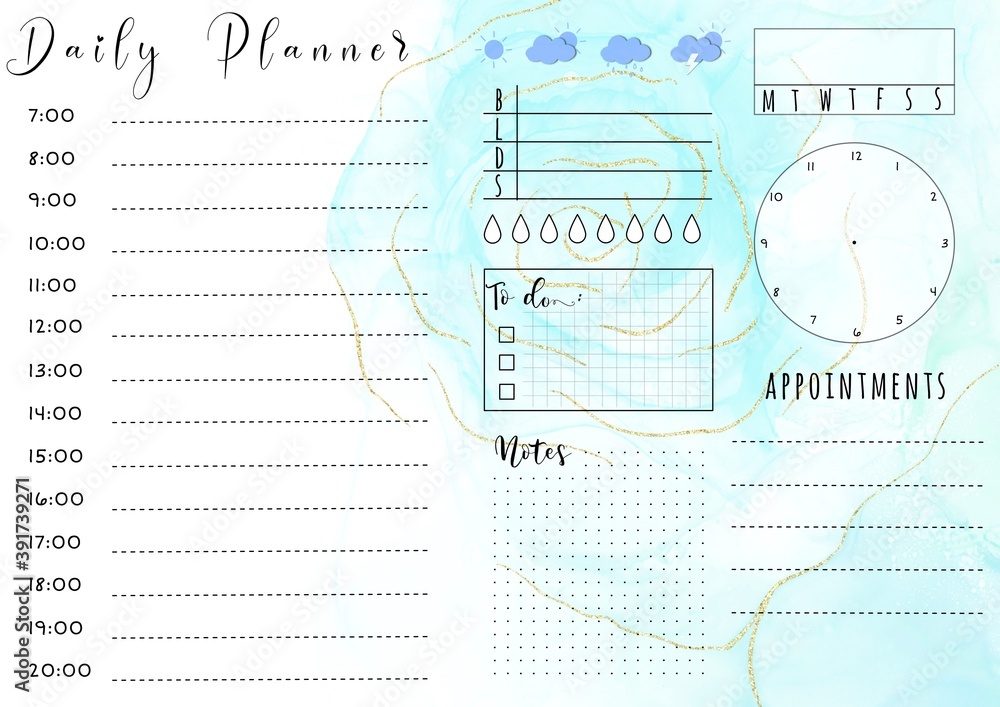 Daily Planner
7:00
8:00
9:00
10:00
11:00
12:00
13:00
14:00
15:00
16:00
17:00
18:00
19:00
20:00
B
L
D
S
To do:
Notes
M T W T F S S
12
1
2
3
4
5
6
7
8
9
10
11
APPOINTMENTS
Adobe Stock | #391739271